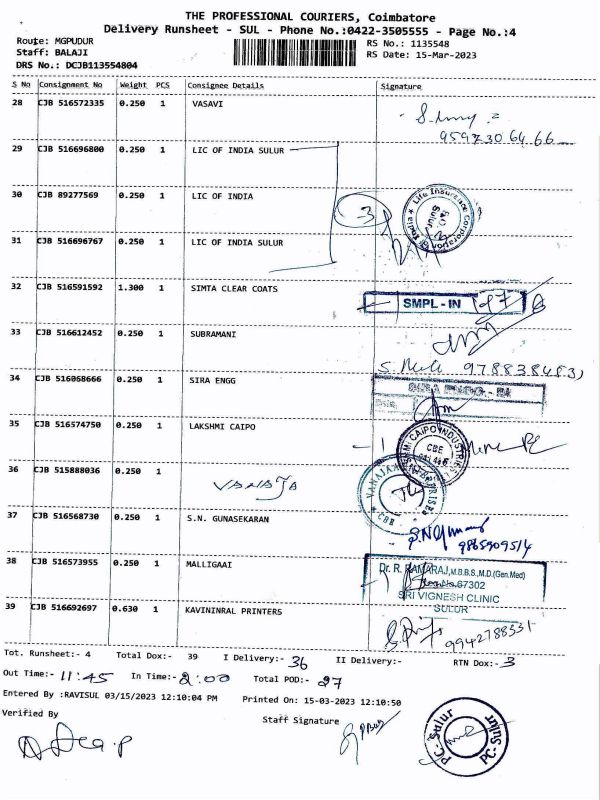 THE PROFESSIONAL COURIERS, Coimbatore
Delivery Runsheet - SUL - Phone No.:0422-3505555 - Page No.:4
Route: MGPUDUR
Staff: BALAJI
DRS No.: DCJB113554804
RS No.: 1135548
RS Date: 15-Mar-2023
S No Consignment No Weight PCS Consignee Details Signature
28 CJB 516572335 0.250 1 VASAVI
9597306466
29 CJB 516696800 0.250 1 LIC OF INDIA SULUR
30 CJB 89277569 0.250 1 LIC OF INDIA
3
Life Insurance Corporation of India
Sulur
31 CJB 516696767 0.250 1 LIC OF INDIA SULUR
32 CJB 516591592 1.300 1 SIMTA CLEAR COATS
SMPL - IN
33 CJB 516612452 0.250 1 SUBRAMANI
34 CJB 516068666 0.250 1 SIRA ENGG
35 CJB 516574750 0.250 1 LAKSHMI CAIPO
CAIPO INDUSTRIES
CBE
36 CJB 515888036 0.250 1 VANAJA
CBE
37 CJB 516568730 0.250 1 S.N. GUNASEKARAN
38 CJB 516573955 0.250 1 MALLIGAAI
Dr. R. RAMARAJ, M.B.B.S., M.D.(Gen.Med)
67302
SRI VIGNESH CLINIC
SULUR
39 CJB 516692697 0.630 1 KAVININRAL PRINTERS
9942788331
Tot. Runsheet:- 4 Total Dox:- 39 I Delivery:- 36 II Delivery:- RTN Dox:- 3
Out Time:- 11:45 In Time:- 2:00 Total POD:- 27
Entered By :RAVISUL 03/15/2023 12:10:04 PM Printed On: 15-03-2023 12:10:50
Verified By Staff Signature
PC-Sulur
PC-Sulur